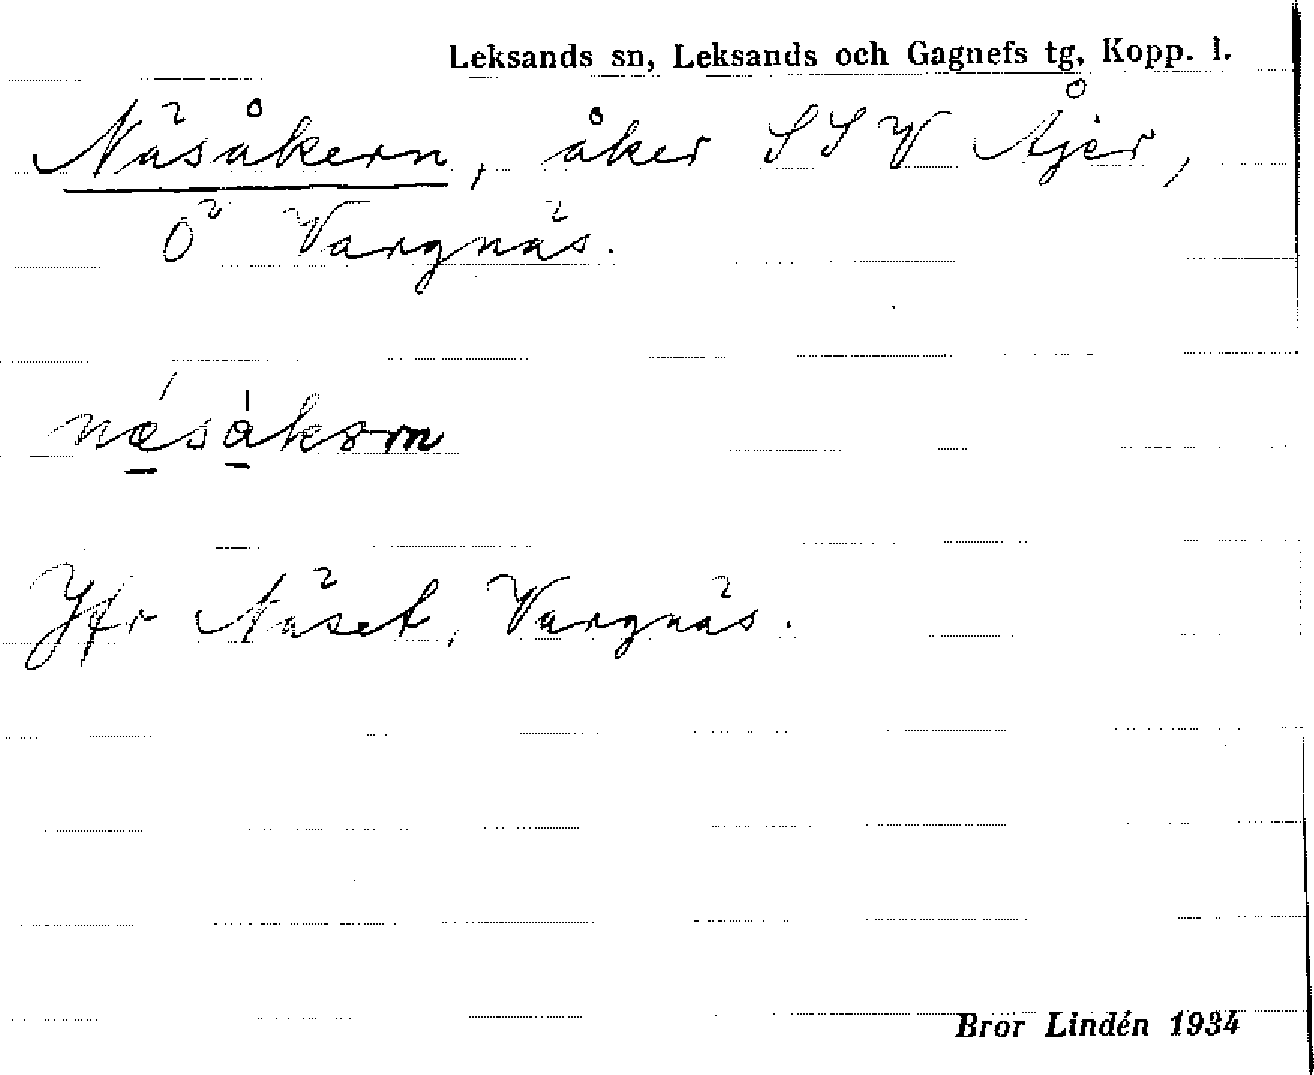 Leksands sn, Leksands och Gagnefs tg, Kopp. l.
Näsåkern, åker SSV Åjer,
Ö Vargnäs.
Jfr Näset, Vargnäs.
Bror Lindén 1934